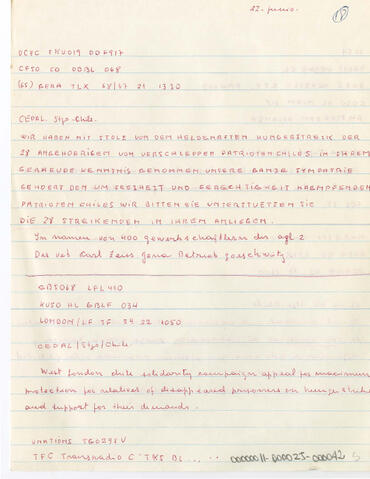 22-junio.
18
CFSO CO DDBL 068
(65) GERA TLX 68/67 21 1330
CEDAL. Stgo-Chile.
WIR HABEN MIT STOLZ VON DEM HELDENHAFTEN HUNGERSTREIK DER
28 ANGEHOERIGEN VON VERSCHLEPPTEN PATRIOTEN CHILES IN IHREM
GEBAEUDE KENNTNIS GENOMMEN UNSERE GANZE SYMPATHIE
GEHOERT DEN UM FREIHEIT UND GERECHTIGKEIT KAEMPFENDEN
PATRIOTEN CHILES WIR BITTEN SIE UNTERSTUETZEN SIE
DIE 28 STREIKENDEN IN IHREM ANLIEGEN.
Im namen von 400 gewerkschaftlern der agl 2
Des veb Carl Zeiss Jena Betrieb
GBS068 LFL410
KUSO HL GBLF 034
LONDON/LF TF 34 22 1050
CEDAL/Stgo/Chile
West london chile solidarity campaign appeal for maximum
protection for relatives of disappeared prisoners on hunger strike
and support for their demands.
UNATIONS TG0298V
TFC Transradio C
0000011-000025-000042